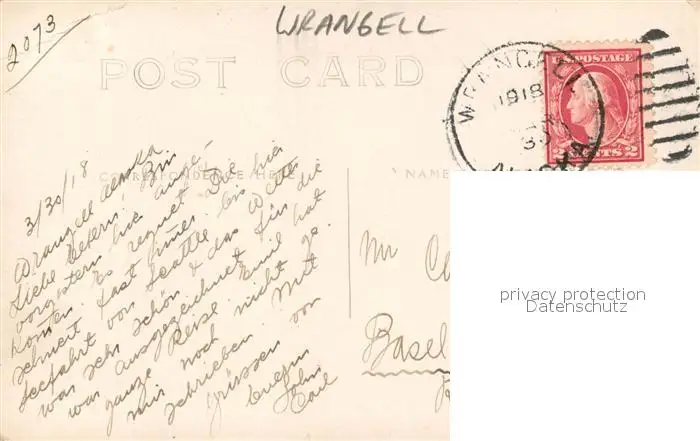 2073
WRANGELL
POST CARD
WRANGELL
1918
ALASKA
U.S. POSTAGE
2 CENTS 2
CORRESPONDENCE HERE
NAME
3/30/18
Wrangell Alaska
Liebe Eltern! Bin
vorgestern hier ange-
kommen. Es regnet hier
schneit fast immer. Die
Seefahrt von Seattle bis
war sehr schön & das Wetter
war ausgezeichnet für die
ganze Reise. Emil hat
mir noch nicht ge-
schrieben. Mit
Grüssen von
Eurem
Sohn
Carl
Mr
Basel
privacy protection
Datenschutz